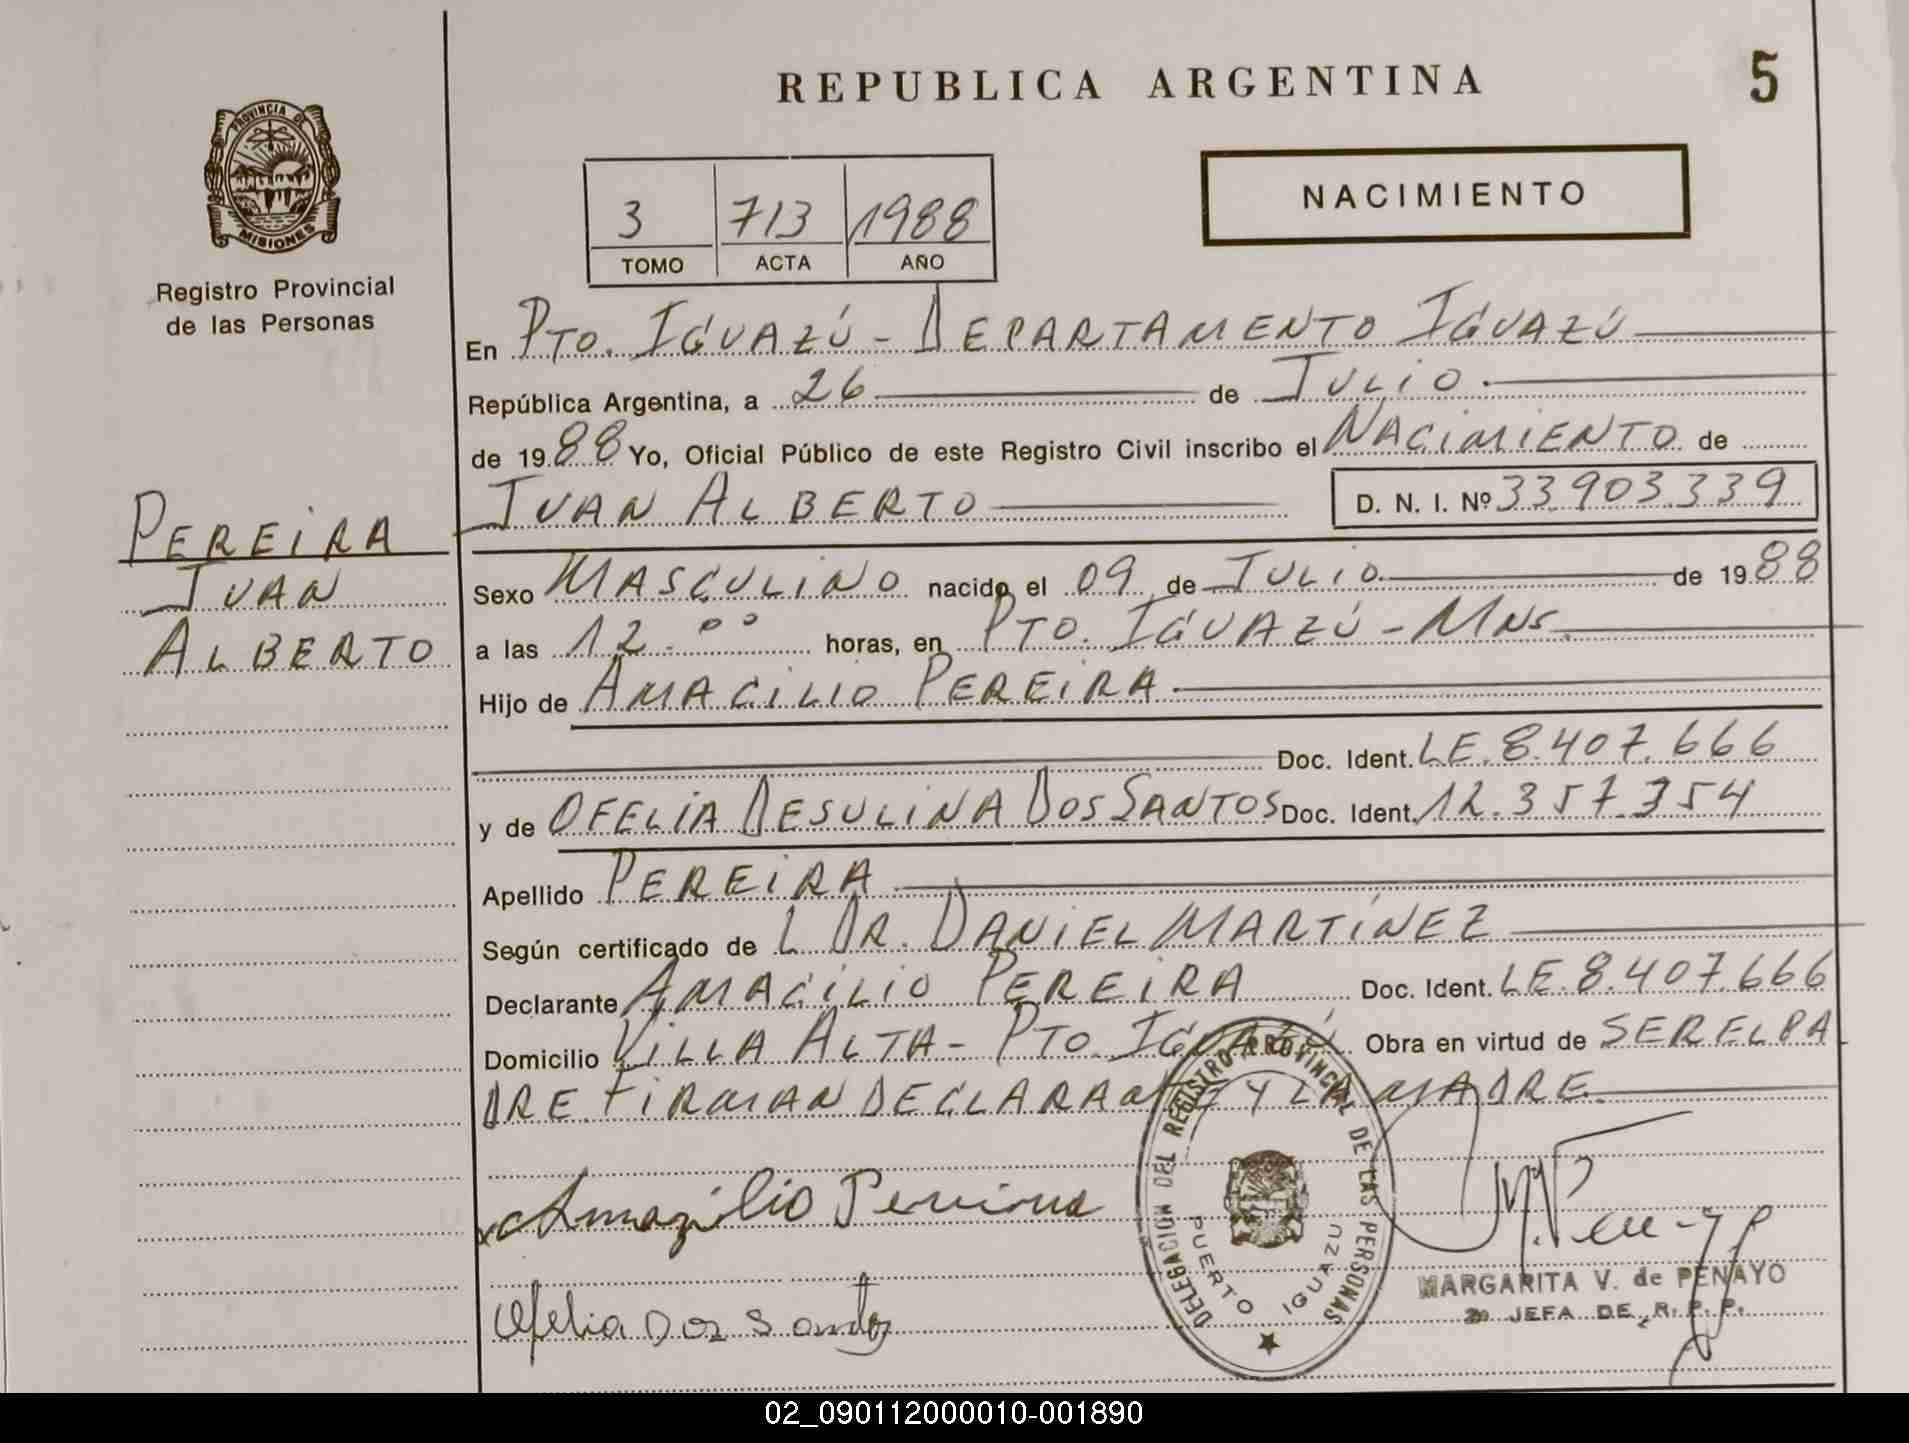 REPUBLICA ARGENTINA
5
PROVINCIA DE
MISIONES
Registro Provincial
de las Personas
3 713 1988
TOMO ACTA AÑO
NACIMIENTO
En PTO. IGUAZÚ - DEPARTAMENTO IGUAZÚ
República Argentina, a 26 de JULIO.
de 1988 Yo, Oficial Público de este Registro Civil inscribo el NACIMIENTO de
JUAN ALBERTO D. N. I. Nº 33.903.339
PEREIRA
JUAN
ALBERTO
Sexo MASCULINO nacido el 09 de JULIO de 1988
a las 12.00 horas, en PTO. IGUAZÚ - MNS.
Hijo de AMACILIO PEREIRA
Doc. Ident. LE.8.407.666
y de OFELIA DESULINA DOS SANTOS Doc. Ident. 12.357.354
Apellido PEREIRA
Según certificado de L DR. DANIEL MARTÍNEZ
Declarante AMACILIO PEREIRA Doc. Ident. LE.8.407.666
Domicilio VILLA ALTA - PTO. IGUAZÚ Obra en virtud de SER EL PA
DRE FIRMAN DECLARANTE Y LA MADRE.
Amazilio Pereira
Ofelia Dos Santos
DELEGACION DEL REGISTRO PROVINCIAL DE LAS PERSONAS
PUERTO IGUAZU
MARGARITA V. de PENAYO
2a JEFA DE R. P. P.
02_090112000010-001890